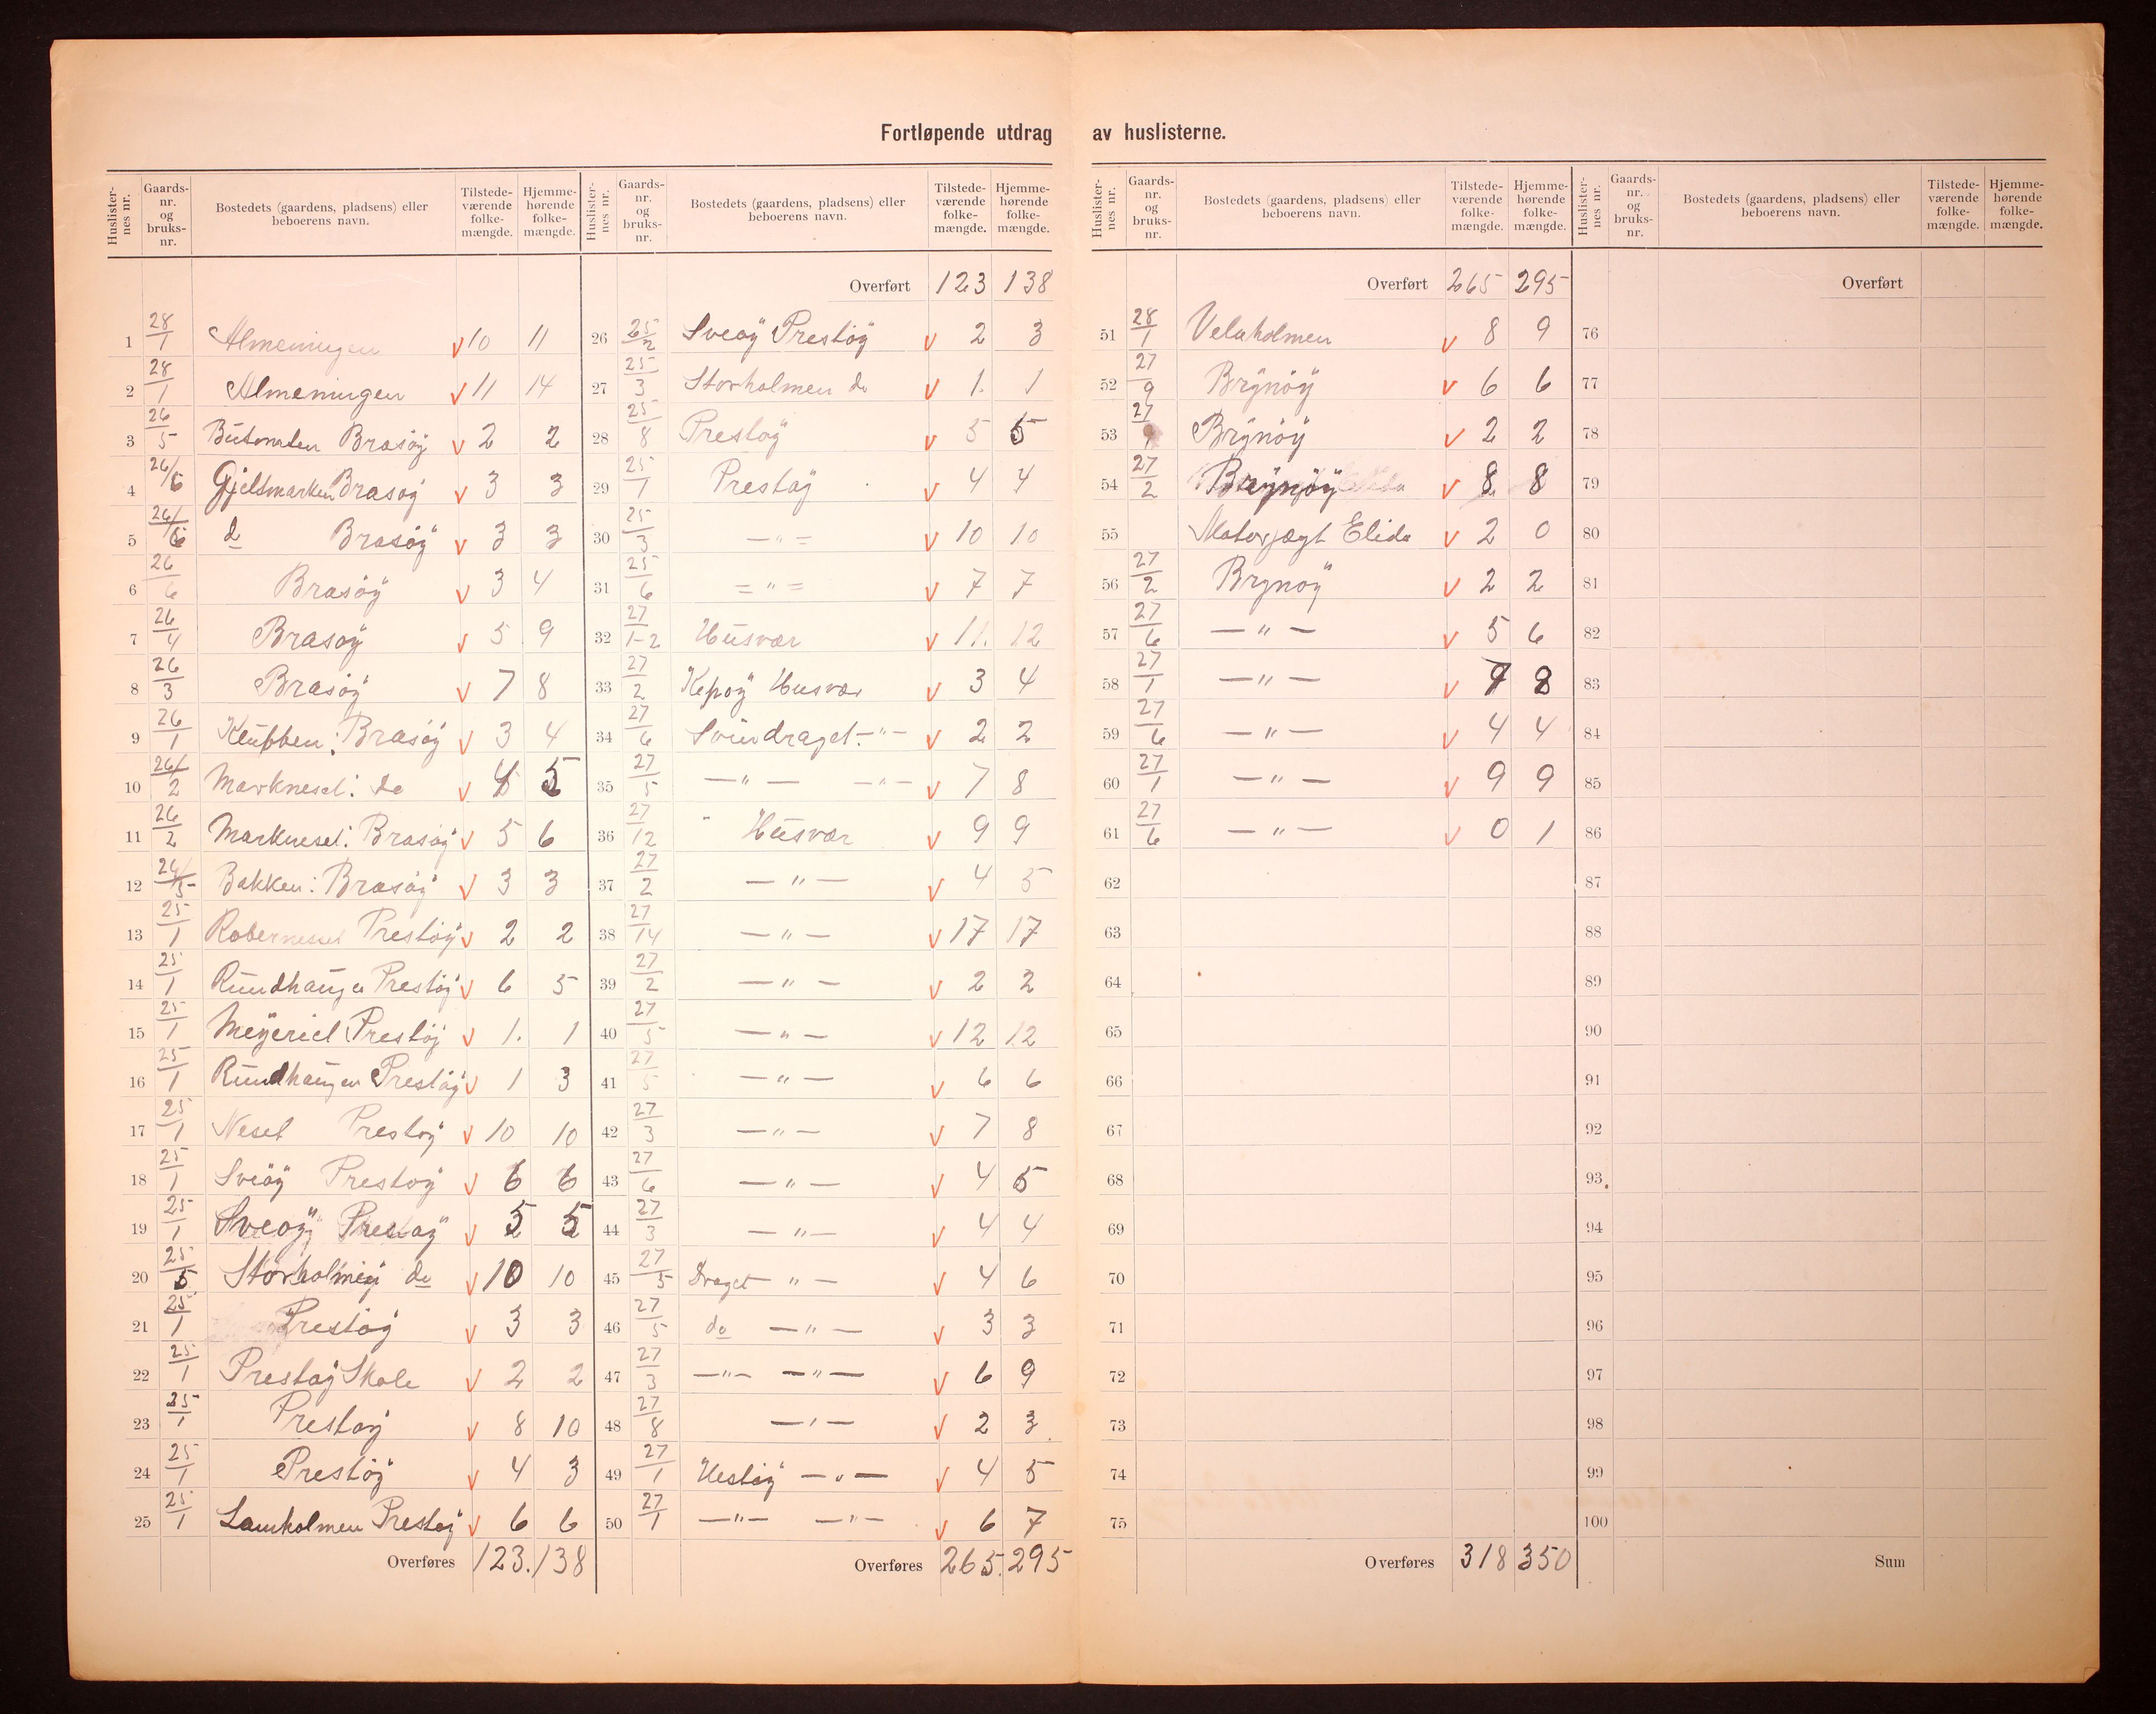 Fortløpende utdrag av huslisterne.
Huslisternes nr. Gaardsnr. og bruksnr. Bostedets (gaardens, pladsens) eller beboerens navn. Tilstedeværende folkemængde. Hjemmehørende folkemængde.
1 28/1 Almeningen v 10 11
2 28/1 Almeningen v 11 14
3 26/5 Brasøy v 2 2
4 26/6 Gjeltmarken Brasøy v 3 3
5 26/6 do Brasøy v 3 3
6 26/6 Brasøy v 3 4
7 26/4 Brasøy v 5 9
8 26/3 Brasøy v 7 8
9 26/1 Klubben: Brasøy v 3 4
10 26/2 Markneset: do v 4 5
11 26/2 Markneset: Brasøy v 5 6
12 26/5 Bakken: Brasøy v 3 3
13 25/1 Prestøy v 2 2
14 25/1 Rundhaugen Prestøy v 6 5
15 25/1 Meyeriet Prestøy v 1. 1
16 25/1 Rundhaugen Prestøy v 1 3
17 25/1 Neset Prestøy v 10 10
18 25/1 Sveøy Prestøy v 6 6
19 25/1 Sveøy Prestøy v 5 5
20 25/5 Storholmen do v 10 10
21 25/1 Prestøy v 3 3
22 25/1 Prestøy Skole v 2 2
23 25/1 Prestøy v 8 10
24 25/1 Prestøy v 4 3
25 25/1 Lamholmen Prestøy v 6 6
Overføres 123. 138
Huslisternes nr. Gaardsnr. og bruksnr. Bostedets (gaardens, pladsens) eller beboerens navn. Tilstedeværende folkemængde. Hjemmehørende folkemængde.
Overført 123 138
26 25/2 Sveøy Prestøy v 2 3
27 25/3 Storholmen do v 1. 1
28 25/8 Prestøy v 5 5
29 25/1 Prestøy v 4 4
30 25/3 — " = v 10 10
31 25/6 = " = v 7 7
32 27/1-2 Husvær v 11. 12
33 27/2 Kepøy Husvær v 3 4
34 27/6 Svindraget - " - v 2 2
35 27/5 — " — — " — v 7 8
36 27/12 " Husvær v 9 9
37 27/2 — " — v 4 5
38 27/14 — " — v 17 17
39 27/2 — " — v 2 2
40 27/5 — " — v 12 12
41 27/5 — " — v 6 6
42 27/3 — " — v 7 8
43 27/6 — " — v 4 5
44 27/3 — " — v 4 4
45 27/5 Draget " — v 4 6
46 27/5 do — " — v 3 3
47 27/3 — " — — " — v 6 9
48 27/8 — ' — v 2 3
49 27/1 Hestøy — " — v 4 5
50 27/1 — " — — " — v 6 7
Overføres 265. 295
Huslisternes nr. Gaardsnr. og bruksnr. Bostedets (gaardens, pladsens) eller beboerens navn. Tilstedeværende folkemængde. Hjemmehørende folkemængde.
Overført 265 295
51 28/1 Velaholmen v 8 9
52 27/9 Brynøy v 6 6
53 27/1 Brynøy v 2 2
54 27/2 Brynøy v 8. 8
55 Motorjagt Elida v 2 0
56 27/2 Brynøy v 2 2
57 27/6 — " — v 5 6
58 27/1 — " — v 7 8
59 27/6 — " — v 4 4
60 27/1 — " — v 9 9
61 27/6 — " — v 0 1
62
63
64
65
66
67
68
69
70
71
72
73
74
75
Overføres 318 350
Huslisternes nr. Gaardsnr. og bruksnr. Bostedets (gaardens, pladsens) eller beboerens navn. Tilstedeværende folkemængde. Hjemmehørende folkemængde.
Overført
76
77
78
79
80
81
82
83
84
85
86
87
88
89
90
91
92
93
94
95
96
97
98
99
100
Sum